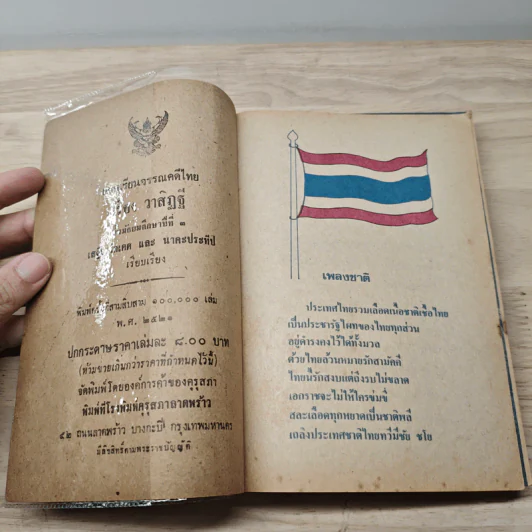 เรียนวรรณคดีไทย
วาสิฏฐี
มัธยมศึกษาปีที่ ๓
และ นาคะประทีป
เรียบเรียง
พิมพ์ครั้งที่สามสิบสาม ๑๐๐,๐๐๐ เล่ม
พ.ศ. ๒๕๒๑
ปกกระดาษราคาเล่มละ ๘.๐๐ บาท
(ห้ามขายเกินกว่าราคาที่กำหนดไว้นี้)
จัดพิมพ์โดยองค์การค้าของคุรุสภา
พิมพ์ที่โรงพิมพ์คุรุสภาลาดพร้าว
ถนนลาดพร้าว บางกะปิ กรุงเทพมหานคร
มีลิขสิทธิ์ตามพระราชบัญญัติ
เพลงชาติ
ประเทศไทยรวมเลือดเนื้อชาติเชื้อไทย
เป็นประชารัฐไผทของไทยทุกส่วน
อยู่ดำรงคงไว้ได้ทั้งมวล
ด้วยไทยล้วนหมายรักสามัคคี
ไทยนี้รักสงบแต่ถึงรบไม่ขลาด
เอกราชจะไม่ให้ใครข่มขี่
สละเลือดทุกหยาดเป็นชาติพลี
เถลิงประเทศชาติไทยทวีมีชัย ชโย